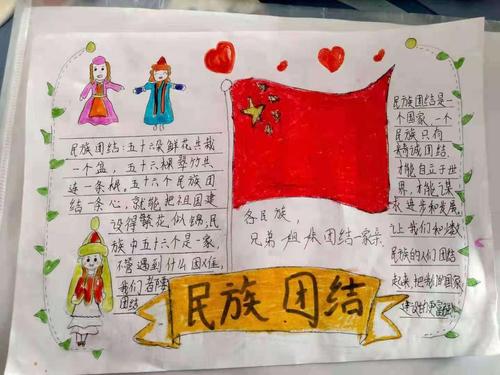 民族团结:五十六朵鲜花共栽
一个盆,五十六棵翠竹共
连一条根,五十六个民族团
结一条心,就能把祖国建
设得繁花似锦,民
族中五十六个是一家,
不管遇到什么困难,
我们都
团结
各民族,
兄弟姐妹团结一家亲
民族团结是一
个国家,一个
民族只有
精诚团结,
才能自立于世
界,才能谋
求进步和发展,
让我们和
民族的人们团结
起来,把我们的国家
建设的更富强
民族团结